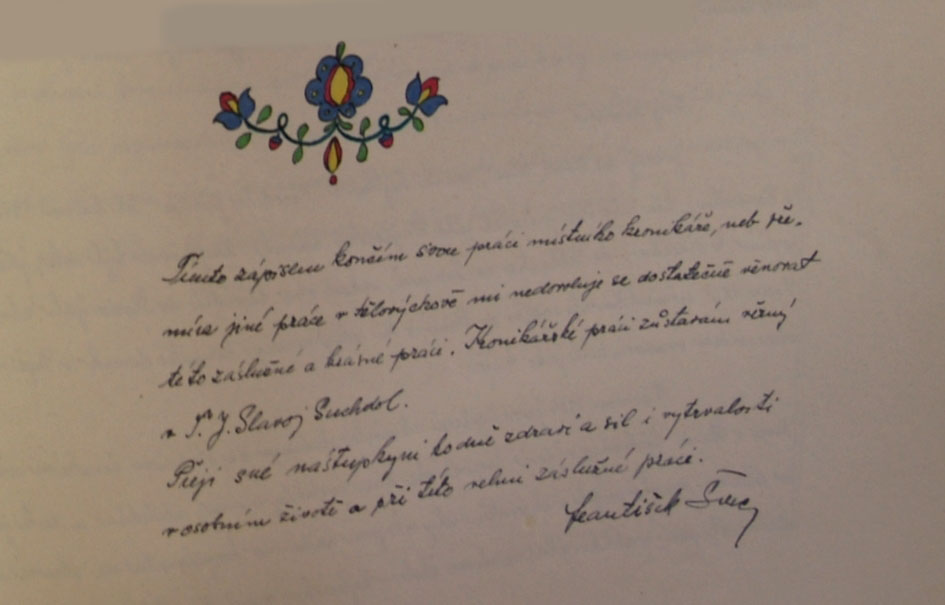 Tímto zápisem končím svou práci místního kronikáře, neb pře-
míra jiné práce v tělovýchově mi nedovoluje se dostatečně věnovat
této záslužné a krásné práci. Kronikářské práci zůstavám věrný
v T. J. Slavoj Suchdol.
Přeji své naštupkyni hodně zdraví a sil i vytrvalosti
v osobním životě a při této velmi záslužné práci.
František